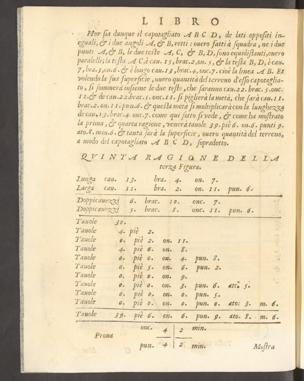 LIBRO
Hor sia dunque il capotagliato A B C D, de lati oppositi in-
eguali, & i due anguli A, & B, retti: overo fatti à squadra, ne i due
punti A, & B, le due teste A C, & B D, sono equidistanti, overo
parallele; la testa A C, è cau. 15. brac. 2. on. 5. & la testa B D, è cau.
7. bra. 5. on. 6. & è lungo cau. 13. brac. 4. onc. 7. cioè la linea A B. Et
volendo la sua superficie, overo quantità del terreno d'esso capotaglia-
to, si summerà insieme le due teste, che saranno cau. 22. brac. 5. onc.
11. & de cau. 22. brac. 5. onc. 11. si piglierà la metà, che sarà cau. 11.
brac. 2. on. 11. pun. 6. & questa metà si multiplicarà con la lunghezza
de cau. 13. brac. 4. onc. 7. come qui sotto si vede, & come ha mostrato
la prima, & quarta ragione, venerà tauole 39. piè 6. on. 6. punti 9.
ato. 8. mom. 6. & tanta sarà la superficie, overo quantità del terreno,
a modo del capotagliato A B C D, sopradetto.
QVINTA RAGIONE DELLA
terza Figura.
Lunga cau. 13. bra. 4. on. 7.
Larga cau. 11. bra. 2. on. 11. pun. 6.
Doppicauezzi 6. brac. 10. onc. 7.
Doppicauezzi 5. brac. 8. onc. 11. pun. 6.
Tauole 30.
Tauole 4. piè 2.
Tauole 0. piè 2. on. 11.
Tauole 4. piè 6. on. 8.
Tauole 0. piè 0. on. 4. pun. 8.
Tauole 0. piè 5. on. 6. pun. 2.
Tauole 0. piè 0. on. 9.
Tauole 0. piè 0. on. 3. pun. 6. ato. 5.
Tauole 0. piè 0. on. 0. pun. 5.
Tauole 0. piè 0. on. 0. pun. 0. ato. 3. m. 6.
Tauole 39. piè 6. on. 6. pun. 9. ato. 8. m. 6.
onc. 4 2 min.
Proua
pun. 4 2 min.
Mostra